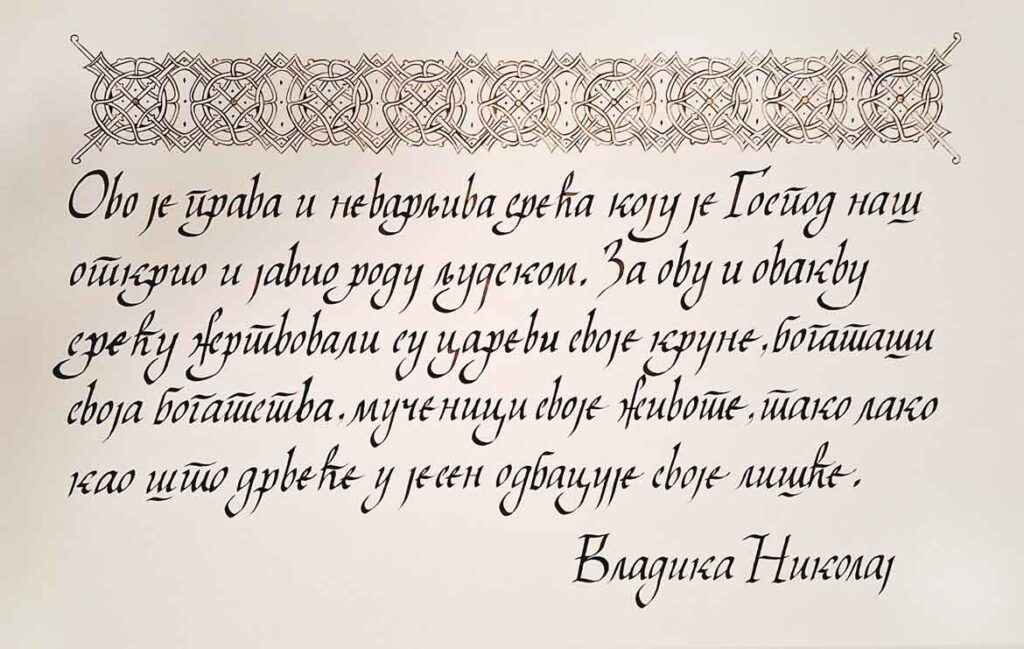 Ово је права и неварљива срећа коју је Господ наш
открио и јавио роду људском. За ову и овакву
срећу жртвовали су цареви своје круне, богаташи
своја богатства, мученици своје животе, тако лако
као што дрвеће у јесен одбацује своје лишће.
Владика Николај